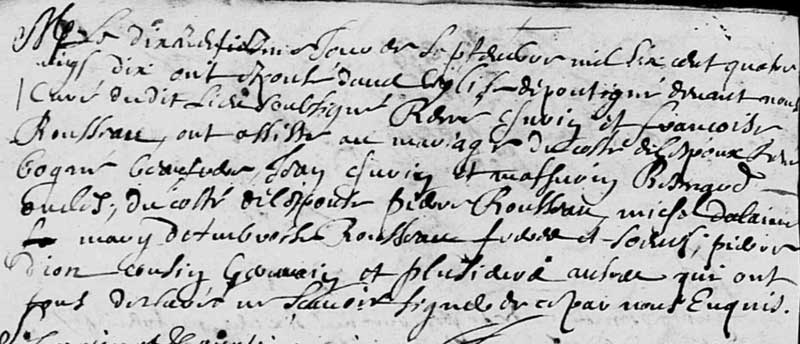 Le dixneufiesme Jour de Septembre mil six cent quatre
vingt dix ont epousé dans l'eglise de pontigné devant nous
Curé dudit Lieu soubsigné René et francoise
Rousseau, ont assisté au mariage du costé de l'epoux
beaufrere, Jean et mathurin
oncles, du costé de l'epouse pierre Rousseau, michel dalaine
mary d'ambroise Rousseau frere et soeur, pierre
dion cousin Germain et plusieurs autres qui ont
tous declaré ne scavoir signer de ce par nous Enquis.